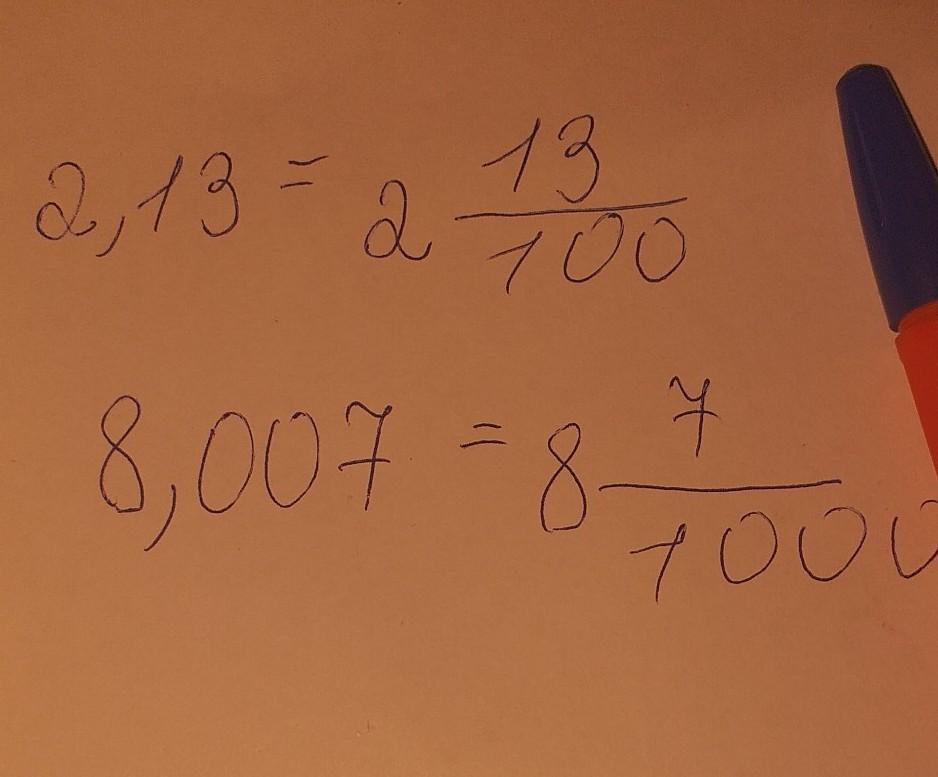 2,13 = 2 13/100
8,007 = 8 7/1000